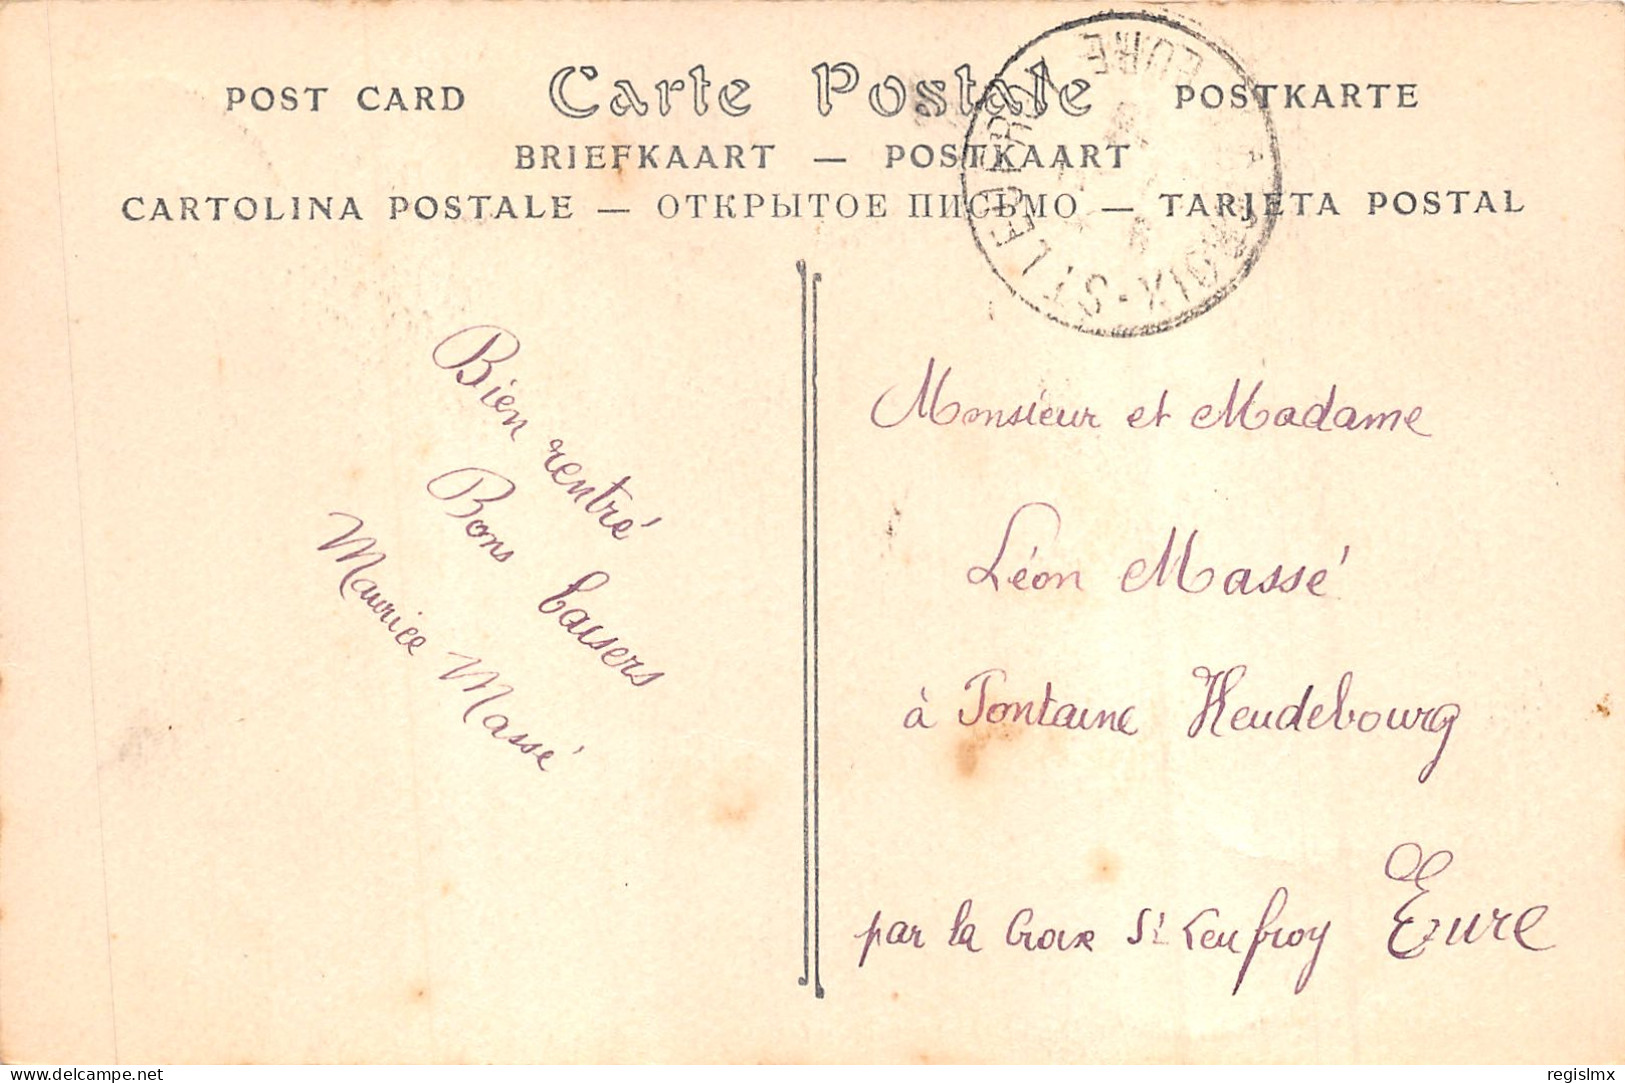 POST CARD Carte Postale POSTKARTE
BRIEFKAART — POSTKAART
CARTOLINA POSTALE — ОТКРЫТОЕ ПИСЬМО — TARJETA POSTAL
EURE
Bien rentré
Bons baisers
Maurice Massé
Monsieur et Madame
Léon Massé
à Fontaine Heudebourg
par la Croix St Leufroy Eure
delcampe.net
regislmx